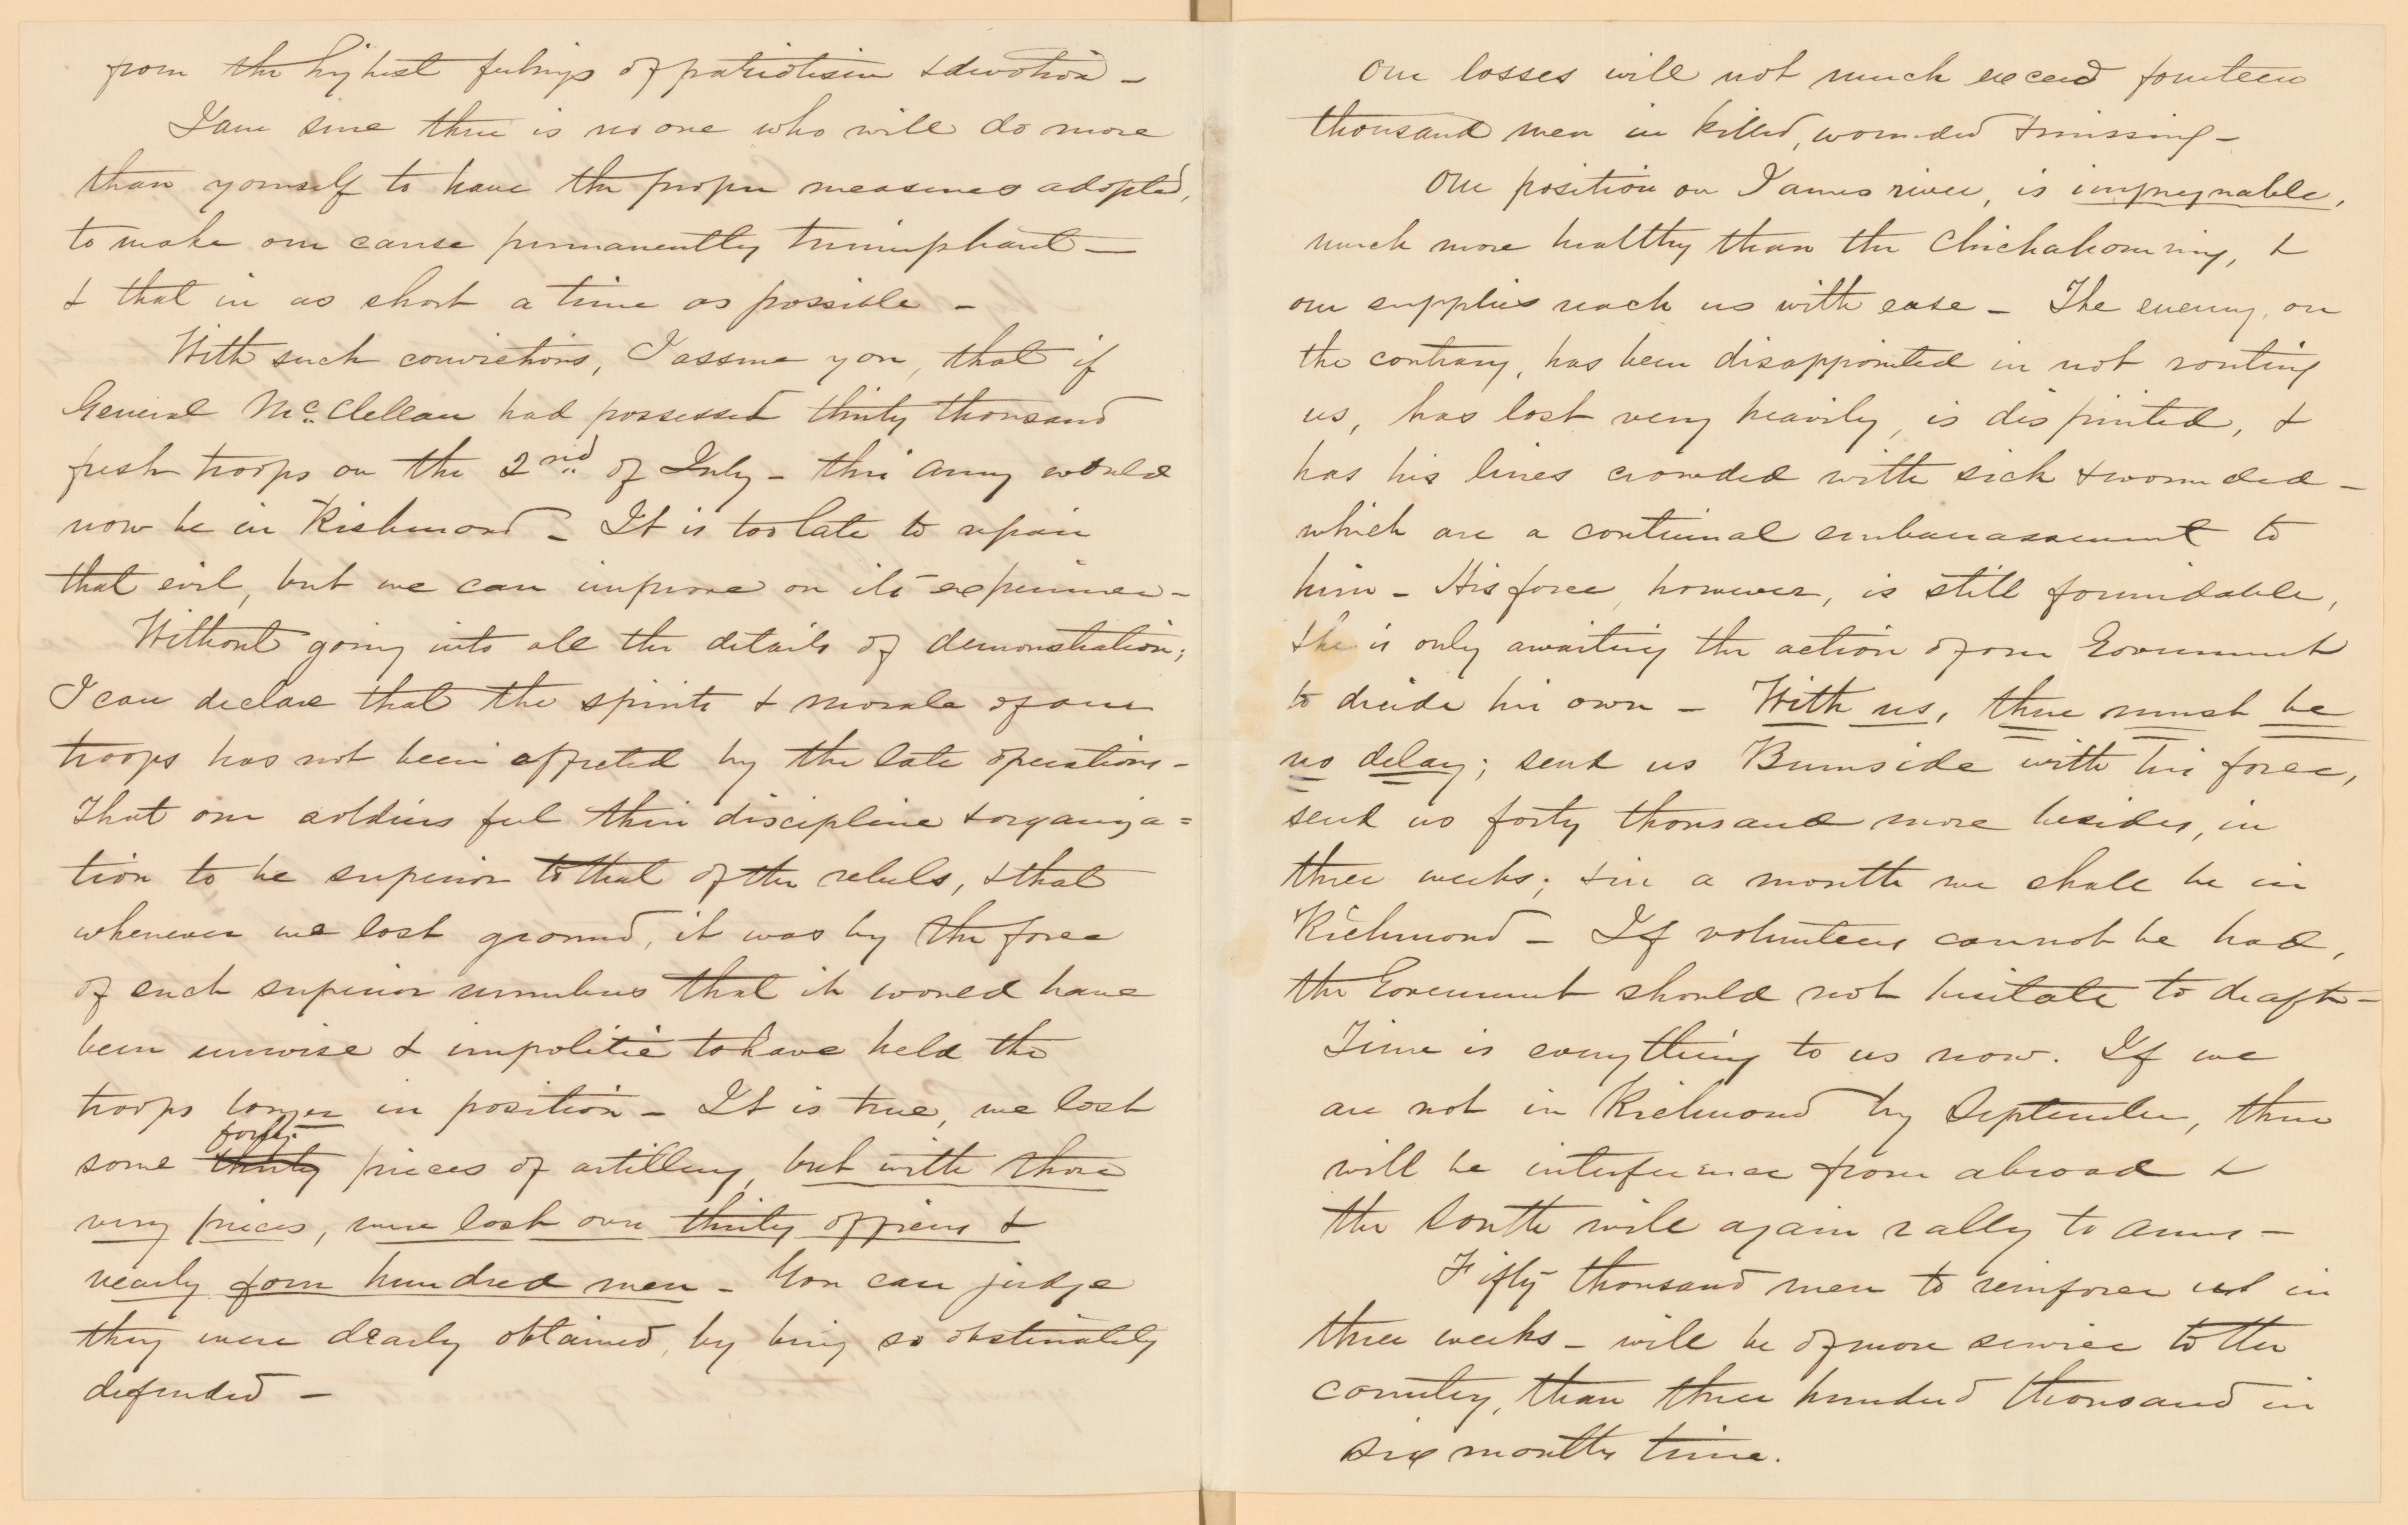 from the highest feelings of patriotism & devotion –
I am sure there is no one who will do more
than yourself to have the proper measures adopted,
to make our cause permanently triumphant –
& that in as short a time as possible –
With such convictions, I assure you, that if
General McClellan had possessed thirty thousand
fresh troops on the 2nd of July – this army would
now be in Richmond – It is too late to repair
that evil, but we can improve on its experience –
Without going into all the details of demonstration;
I can declare that the spirits & morale of our
troops has not been affected by the late operations –
That our soldiers feel their discipline & organiza=
tion to be superior to that of the rebels, & that
whenever we lost ground, it was by the force
of such superior numbers that it would have
been unwise & impolitic to have held the
troops longer in position – It is true, we lost
forty
some thirty pieces of artillery, but with those
very pieces, were lost over thirty officers &
nearly four hundred men – You can judge
they were dearly obtained, by being so obstinately
defended –
Our losses will not much exceed fourteen
thousand men in killed, wounded & missing –
Our position on James river, is impregnable,
much more healthy than the Chickahominy, &
our supplies reach us with ease – The enemy, on
the contrary, has been disappointed in not routing
us, has lost very heavily, is dispirited, &
has his lines crowded with sick & wounded –
which are a continual embarrassment to
him – His force, however, is still formidable,
& he is only awaiting the action of our Government
to decide his own – With us, there must be
no delay; send us Burnside with his force,
send us forty thousand more besides, in
three weeks; & in a month we shall be in
Richmond – If volunteers cannot be had,
the Government should not hesitate to draft –
Time is everything to us now. If we
are not in Richmond by September, there
will be interference from abroad &
the South will again rally to arms –
Fifty thousand men to reinforce us in
three weeks – will be of more service to the
country, than three hundred thousand in
six months time.